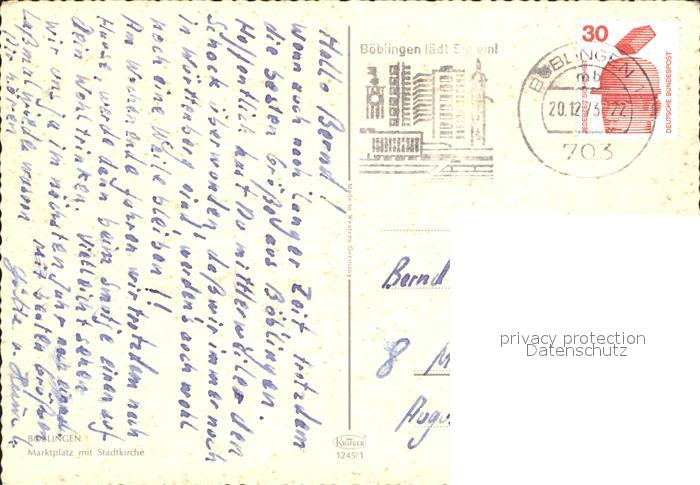 Hallo Bernd!
Wenn auch nach langer Zeit trotzdem
die besten Grüße aus Böblingen.
Hoffentlich hast Du mittlerweile den
Schock überwunden, daß wir immer noch
in Württemberg sind, werden's auch wohl
noch eine Weile bleiben!!
Am Wochenende fahren wir trotzdem nach
Hause, werde dann beim einen auf
Dein Wohl trinken. Vielleicht sehen
wir uns im nächsten Jahr
Laß mal wieder was mit besten Grüßen
hören
BÖBLINGEN
Marktplatz mit Stadtkirche
Made in Western Germany
KRÜGER
1245/1
Böblingen lädt Sie ein!
BÖBLINGEN 1
mb
20.12.73-22
703
30
JEDERZEIT SICHERHEIT
DEUTSCHE BUNDESPOST
Bernd
8 M
Augus
privacy protection
Datenschutz